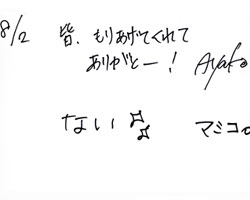 8/2 皆、もりあげてくれて
ありがとー! Ayako
ない
マミコ